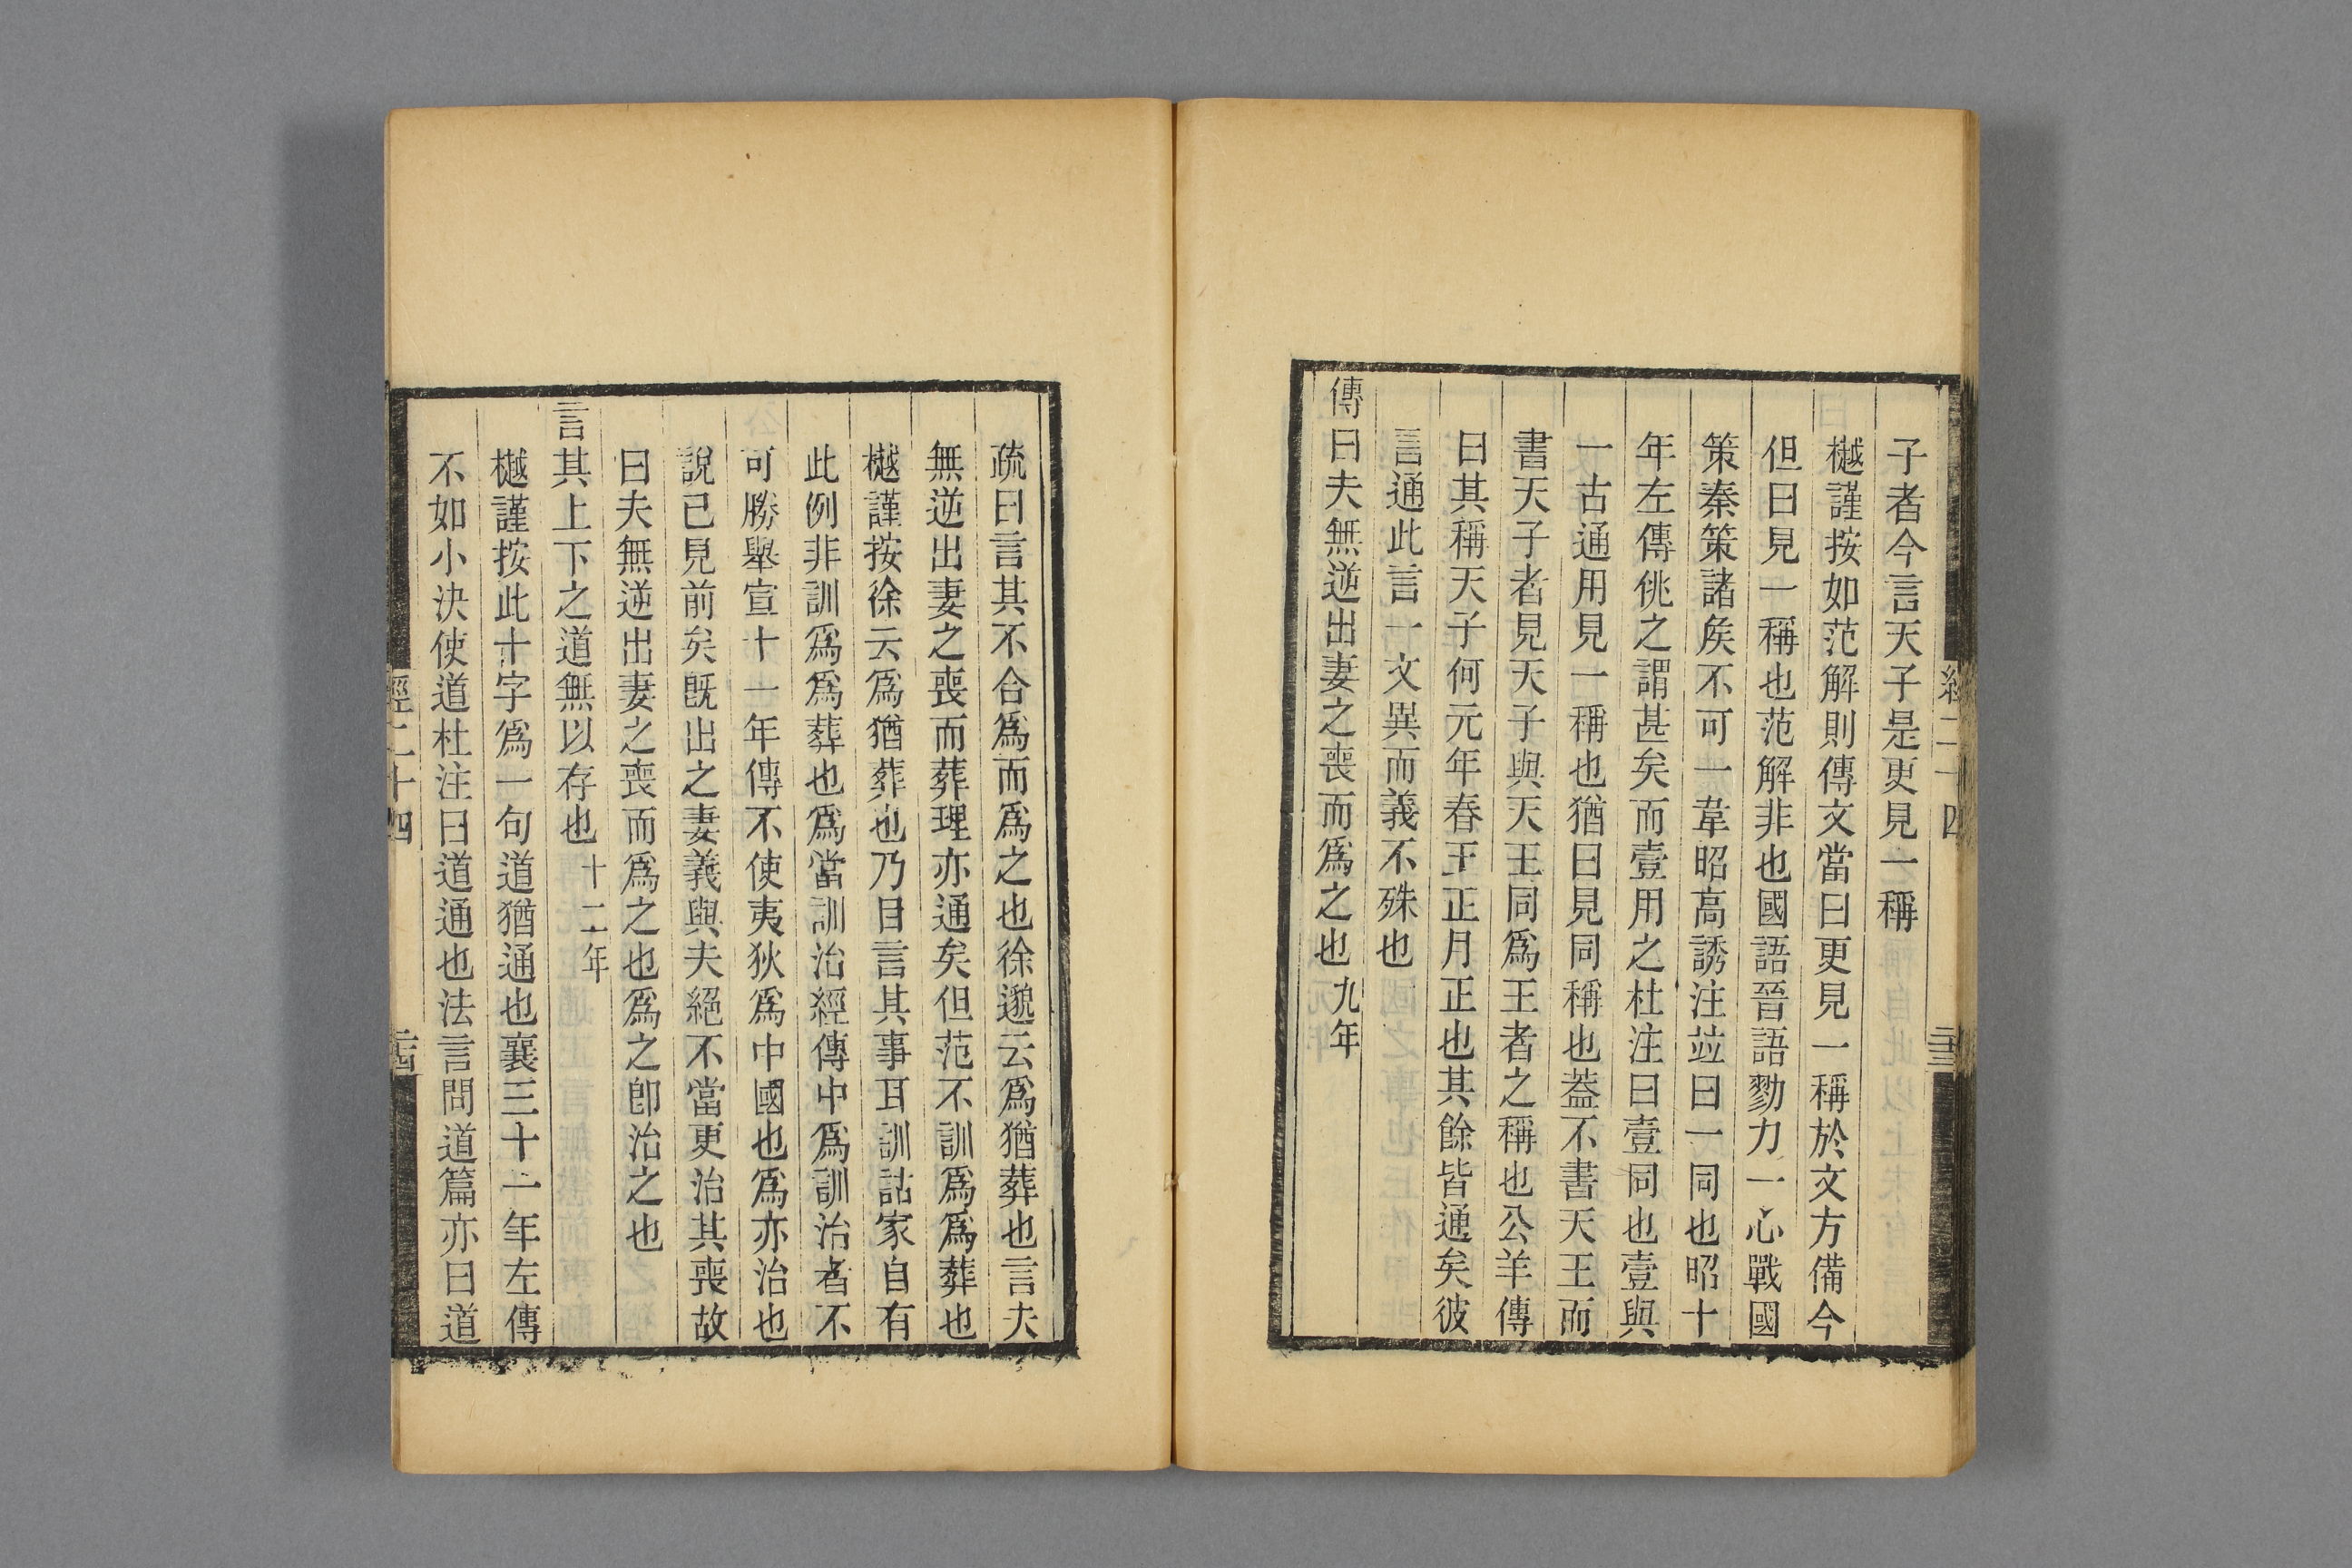 子者今言天子是更見一稱
樾謹按如范解則傳文當曰更見一稱於文方備今
但曰見一稱也范解非也國語晉語勠力一心戰國
策秦策諸矦不可一韋昭高誘注竝曰一同也昭十
年左傳佻之謂甚矣而壹用之杜注曰壹同也壹與
一古通用見一稱也猶曰見同稱也葢不書天王而
書天子者見天子與天王同爲王者之稱也公羊傳
曰其稱天子何元年春王正月正也其餘皆通矣彼
言通此言一文異而義不殊也
傳曰夫無逆出妻之喪而爲之也九年
疏曰言其不合爲而爲之也徐邈云爲猶葬也言夫
無逆出妻之喪而葬理亦通矣但范不訓爲爲葬也
樾謹按徐云爲猶葬也乃目言其事耳訓詁家自有
此例非訓爲爲葬也爲當訓治經傳中爲訓治者不
可勝舉宣十一年傳不使夷狄爲中國也爲亦治也
說已見前矣旣出之妻義與夫絕不當更治其喪故
曰夫無逆出妻之喪而爲之也爲之卽治之也
言其上下之道無以存也十二年
樾謹按此十字爲一句道猶通也襄三十一年左傳
不如小決使道杜注曰道通也法言問道篇亦曰道
經二十四
二十四